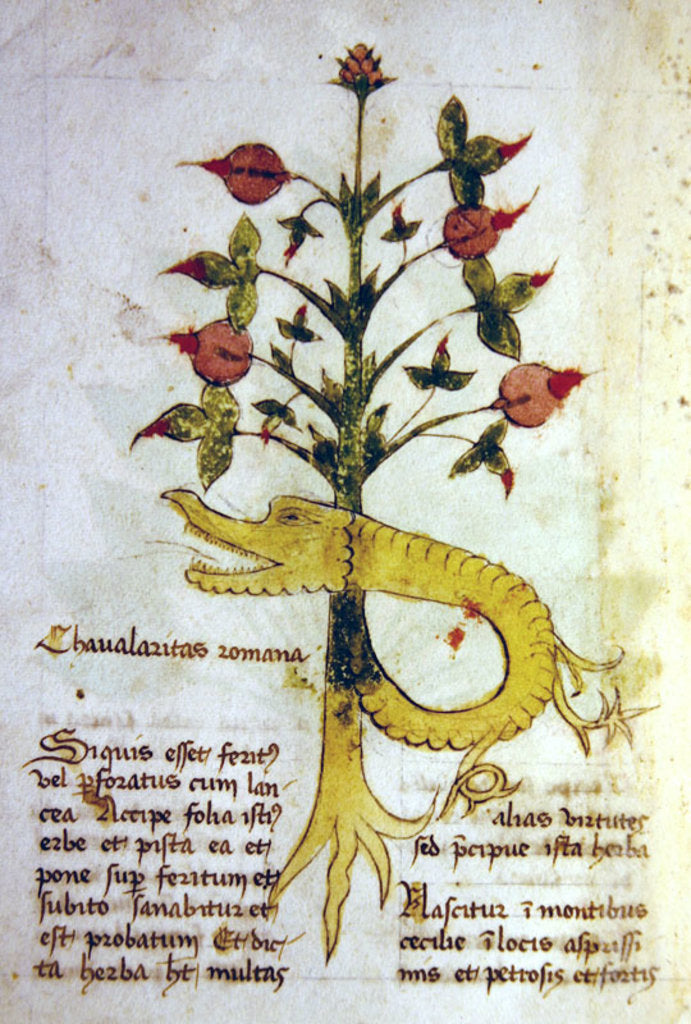 Chaualaritas romana
Siquis esset ferit⁹
vel ꝑforatus cum lan-
cea Accipe folia isti⁹
erbe et pista ea et
pone sup̱ feritum et
subito sanabitur et
est probatum Et dic-
ta herba h̄t multas
alias virtutes
sed p̄cipue ista herba
Nascitur ī montibus
cecilie ī locis asprissi
mis et petrosis et fortis